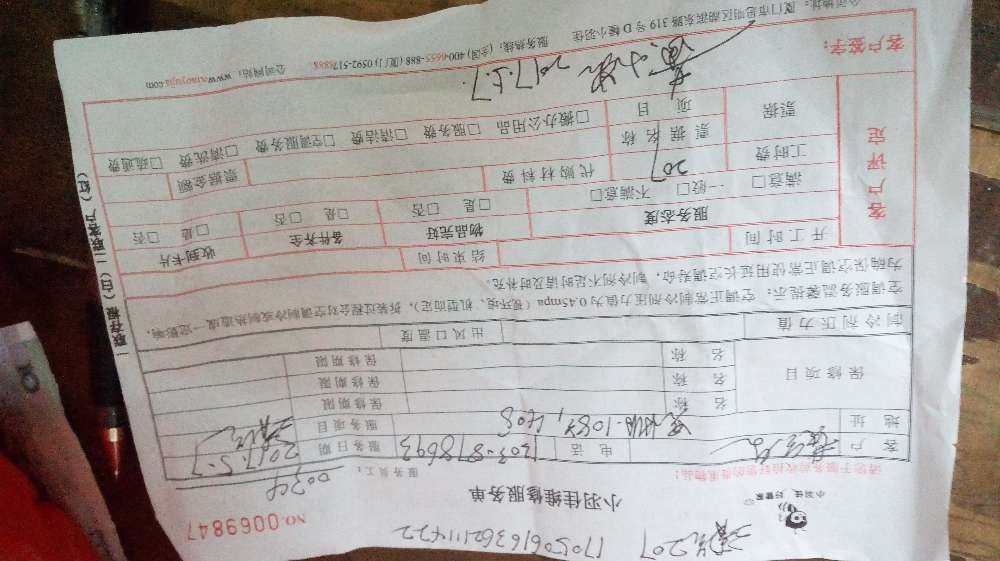 170506163621111422
小羽佳 好管家
小羽佳维修服务单
NO.0069847
请您于服务前收捡好您的贵重物品:
服务员工:
0034
客户
电话
服务日期
2017.5.7
地址
服务项目
保修项目
名称
保修期限
名称
保修期限
名称
保修期限
制冷剂压力值
出风口温度
空调服务温馨提示:空调正常制冷剂压力值为值0.45mpa(视环境、机型而定),拆装过程对会对空调制冷或制热造成一定影响,
为确保空调正常使用延长空调寿命,制冷剂不足时请及时补充。
开工时间
结束时间
收到卡片
客户评定
服务态度
物品完好
备件齐全
满意□ 一般□ 不满意□
□是 □否
□是 □否
□是 □否
工时费
207
代购材料费
票据
票据名称
票据金额
项目
□搬办公用品 □服务费 □清洁费 □空调服务费 □清洗费 □疏通费
客户签字:
2017.5.7
公司地址:厦门市思明区湖滨东路319号D幢小羽佳 服务热线:(全国)400-6655-888(厦门)0592-5178888 公司网站:www.xiaoyujia.com
一联存根(白)二联客户(红)